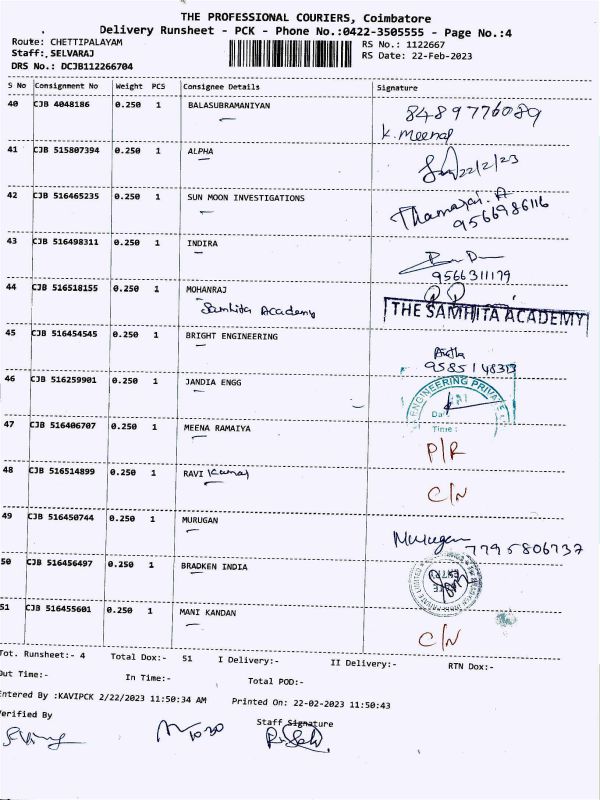 THE PROFESSIONAL COURIERS, Coimbatore
Delivery Runsheet - PCK - Phone No.:0422-3505555 - Page No.:4
Route: CHETTIPALAYAM
RS No.: 1122667
Staff: SELVARAJ
RS Date: 22-Feb-2023
DRS No.: DCJB112266704
S No Consignment No Weight PCS Consignee Details Signature
40 CJB 4048186 0.250 1 BALASUBRAMANIYAN 8489776089
K. Meenal
41 CJB 515807394 0.250 1 ALPHA 22/2/23
42 CJB 516465235 0.250 1 SUN MOON INVESTIGATIONS
9566986116
43 CJB 516498311 0.250 1 INDIRA
9566311179
44 CJB 516518155 0.250 1 MOHANRAJ
Samhita Academy THE SAMHITA ACADEMY
45 CJB 516454545 0.250 1 BRIGHT ENGINEERING
46 CJB 516259901 0.250 1 JANDIA ENGG
ENGINEERING PRIVATE
Time :
47 CJB 516406707 0.250 1 MEENA RAMAIYA P/R
48 CJB 516514899 0.250 1 RAVI Kumar C/N
49 CJB 516450744 0.250 1 MURUGAN Murugan 7795806737
50 CJB 516456497 0.250 1 BRADKEN INDIA
51 CJB 516455601 0.250 1 MANI KANDAN C/N
Tot. Runsheet:- 4 Total Dox:- 51 I Delivery:- II Delivery:- RTN Dox:-
Out Time:- In Time:- Total POD:-
Entered By :KAVIPCK 2/22/2023 11:50:34 AM Printed On: 22-02-2023 11:50:43
Verified By Staff Signature